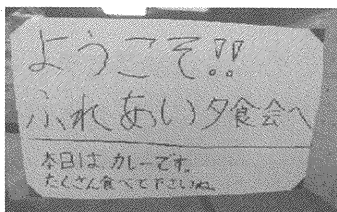 ようこそ!!
ふれあい夕食会へ
本日は カレーです。
たくさん食べて下さいね。